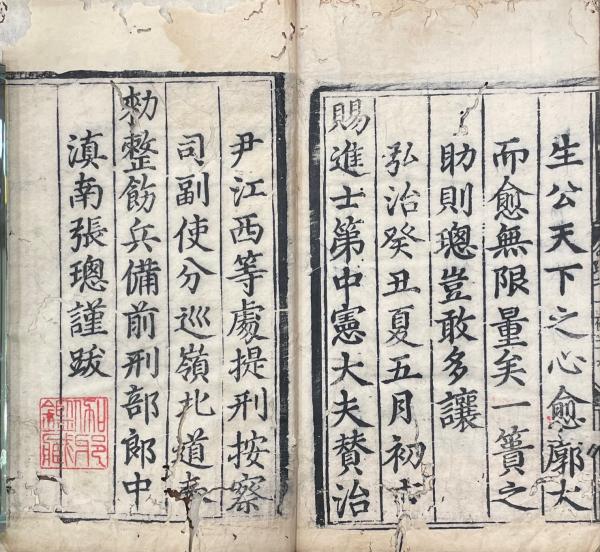 生公天下之心愈廓大
而愈無限量矣一簣之
助則璁豈敢多讓
弘治癸丑夏五月初
賜進士第中憲大夫贊治
尹江西等處提刑按察
司副使分巡嶺北道奉
勑整飭兵備前刑部郎中
滇南張璁謹跋